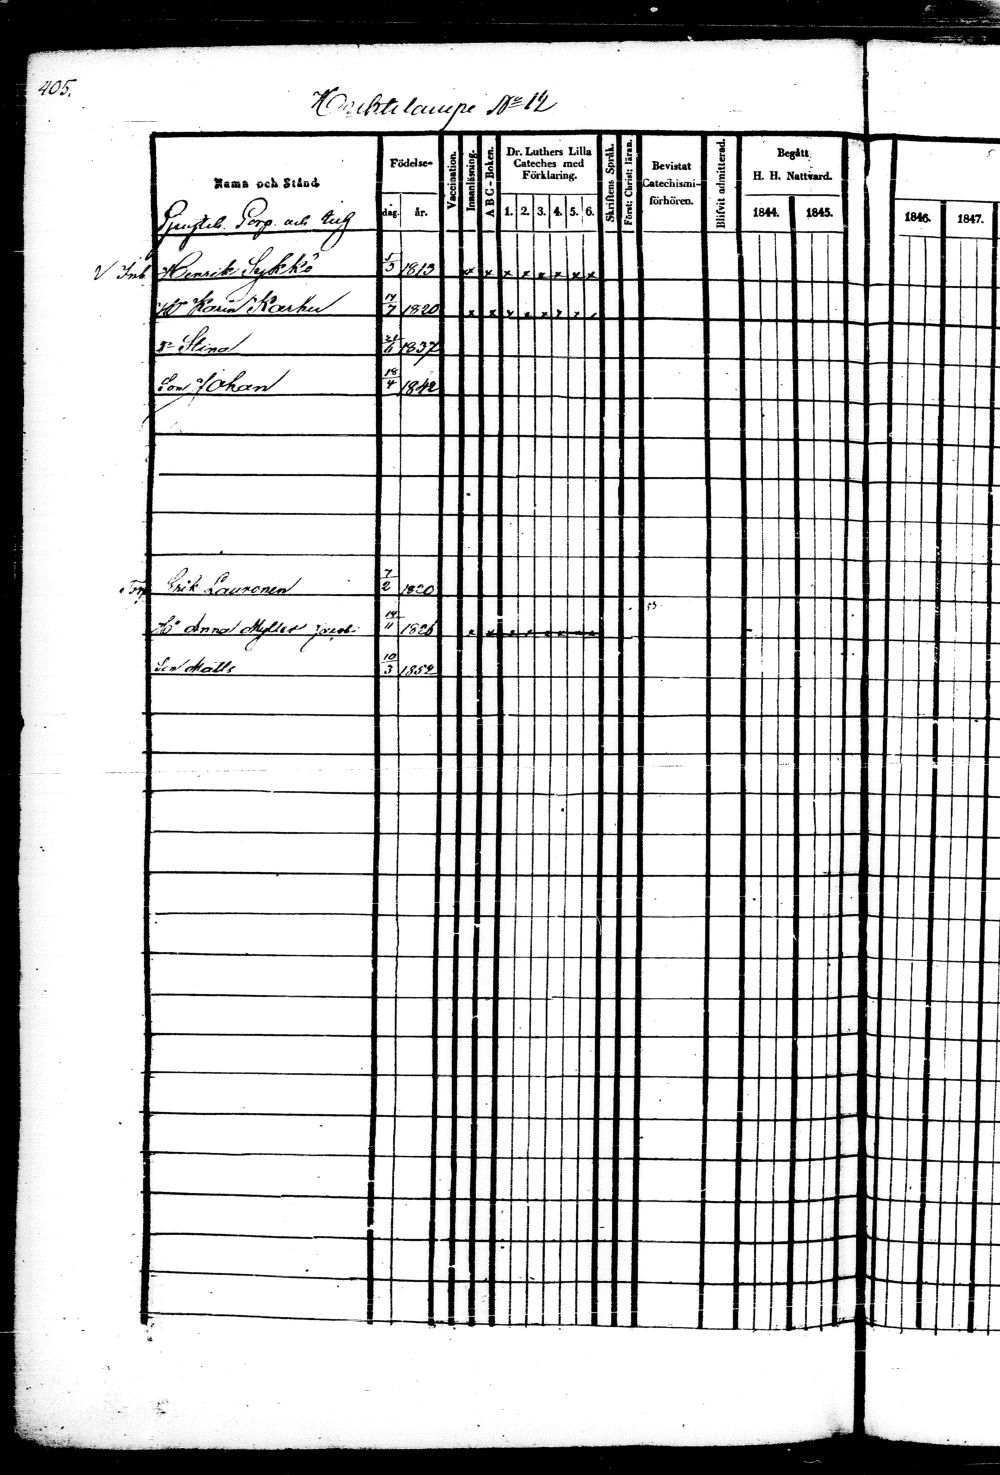 405.
No 12
Namn och Stånd
Födelse-
dag. år.
Vaccination.
Innanläsning.
A B C - Boken.
Dr. Luthers Lilla
Cateches med
Förklaring.
1. 2. 3. 4. 5. 6.
Skriftens Språk.
Först: Christ: läran.
Bevistat
Catechismi-
förhören.
Blifvit admitterad.
Begått
H. H. Nattvard.
1844. 1845.
1846. 1847.
Torp. och
Inh. Henrik Sykkö 1813
Hu Karin Karhu 14/7 1820
Dr Stina 1837
Son Johan 18/4 1842
Torp Erik Lauronen 7/2 1820
Hu Anna Myller 14/11 1826
53
Son Matts 10/3 1852